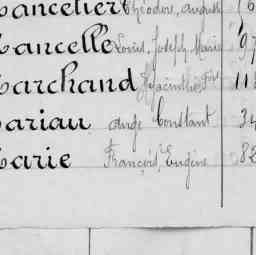 Lancelier Théodore, Auguste
Lancelle Louis, Joseph Marie 97
Marchand Hyacinthe
Mariau Ange Constant 34
Marie François, Eugène 82